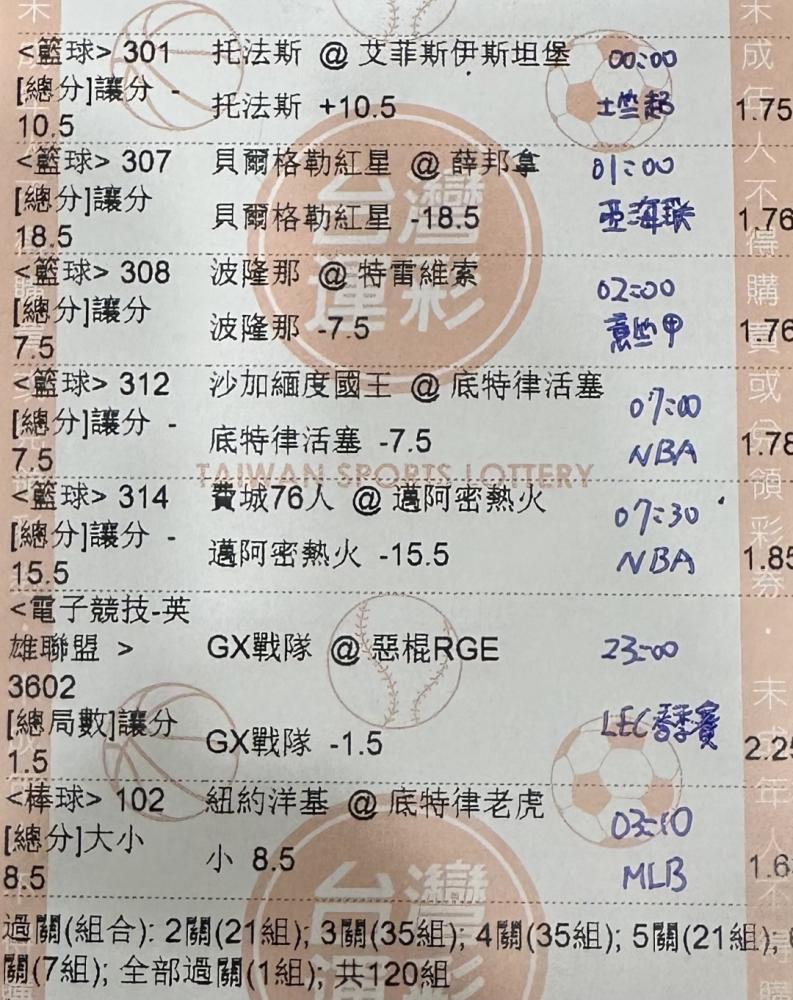 <籃球> 301 托法斯 @ 艾菲斯伊斯坦堡 00:00
[總分]讓分 -
10.5 托法斯 +10.5 土籃超 1.75
<籃球> 307 貝爾格勒紅星 @ 薛邦拿 01:00
[總分]讓分
18.5 貝爾格勒紅星 -18.5 亞海聯 1.76
<籃球> 308 波隆那 @ 特雷維索 02:00
[總分]讓分
7.5 波隆那 -7.5 意籃甲 1.76
<籃球> 312 沙加緬度國王 @ 底特律活塞 07:00
[總分]讓分 -
7.5 底特律活塞 -7.5 NBA 1.78
TAIWAN SPORTS LOTTERY
<籃球> 314 費城76人 @ 邁阿密熱火 07:30
[總分]讓分 -
15.5 邁阿密熱火 -15.5 NBA 1.85
<電子競技-英
雄聯盟 > GX戰隊 @ 惡棍RGE 23:00
3602
[總局數]讓分
1.5 GX戰隊 -1.5 LEC春季賽 2.25
<棒球> 102 紐約洋基 @ 底特律老虎 03:10
[總分]大小
8.5 小 8.5 MLB 1.6
過關(組合): 2關(21組); 3關(35組); 4關(35組); 5關(21組);
關(7組); 全部過關(1組); 共120組
台灣
運彩
台灣
未成年人不得購買或兌領彩券
未成年人不得購